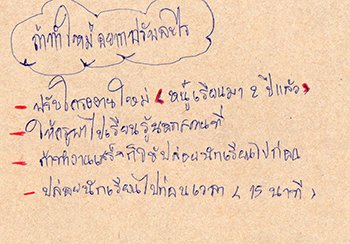 ถ้าทำใหม่ อยากปรับอะไร
- ปรับโครงงานใหม่ (หนูเรียนมา 2 ปีแล้ว)
- ให้ครูพาไปเรียนรู้นอกสถานที่
- ถ้าทำงานเสร็จก็ให้ปล่อยนักเรียนไปก่อน
- ปล่อยนักเรียนไปก่อนเวลา (15 นาที)